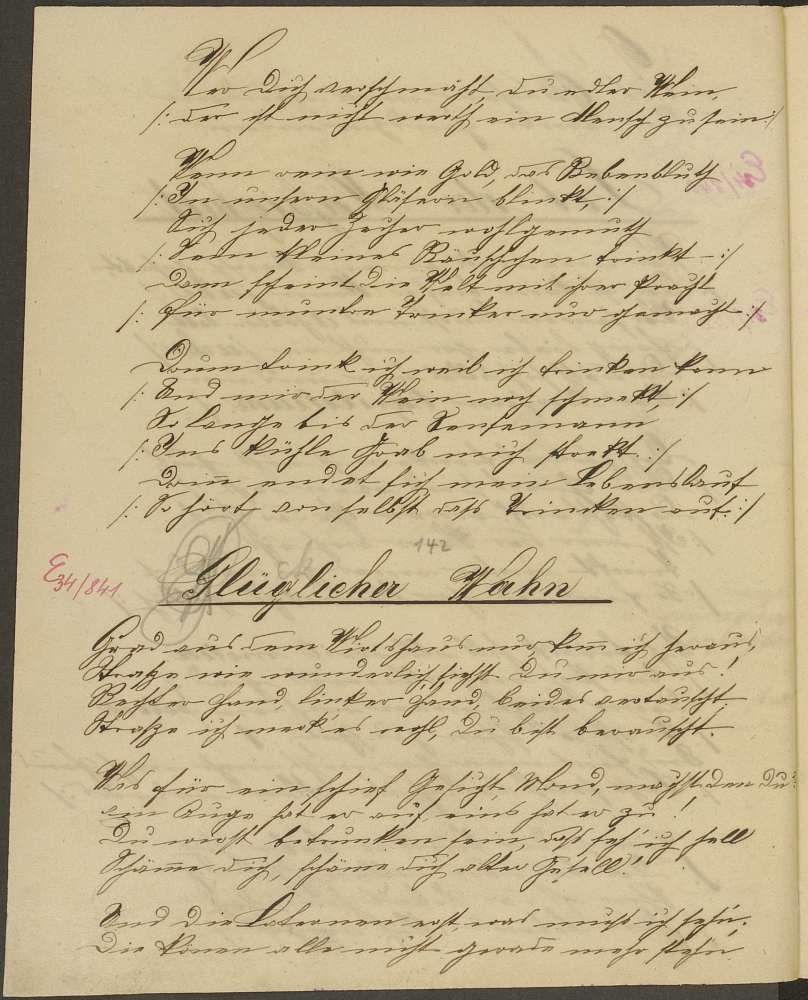 Wer dich verschmäht, du edler Wein,
/: der ist nicht werth ein Mensch zu sein :/
Wenn rein wie Gold, das Rebenbluth
/: In unsern Gläsern blinkt, :/
Sich jeder Zecher wohlgemuth
/: Sein kleines Räuschchen trinkt - :/
Dann scheint die Welt mit ihrer Pracht
/: Für muntre Trinker nur gemacht :/
Drum trink ich weil ich trinken kann
/: Und mir der Wein noch schmekt, :/
So lange bis der Sensemann
/: Ins kühle Grab mich strekt. :/
Dann endet sich mein Lebenslauf
/: So hört von selbst das Trincken auf. :/
142
E34/841
Glüglicher Wahn
Grad aus dem Wirtshaus nur, kom ich heraus,
Straße wie wunderlich, siehst du mir aus!
Rechter Hand, linker Hand, beides vertauscht
Straße ich merk'es wohl, du bist berauscht.
Was für ein schief Gesicht, Mond, machst den du?
ein Auge hat er auf, eins hat er zu!
Du wirst betrunken sein, das seh' ich hell
Schäme dich, schäme dich alter Gesell!
Und die Laternen erst, was muß ich sehn,
Die könen alle nicht gerade mehr stehn